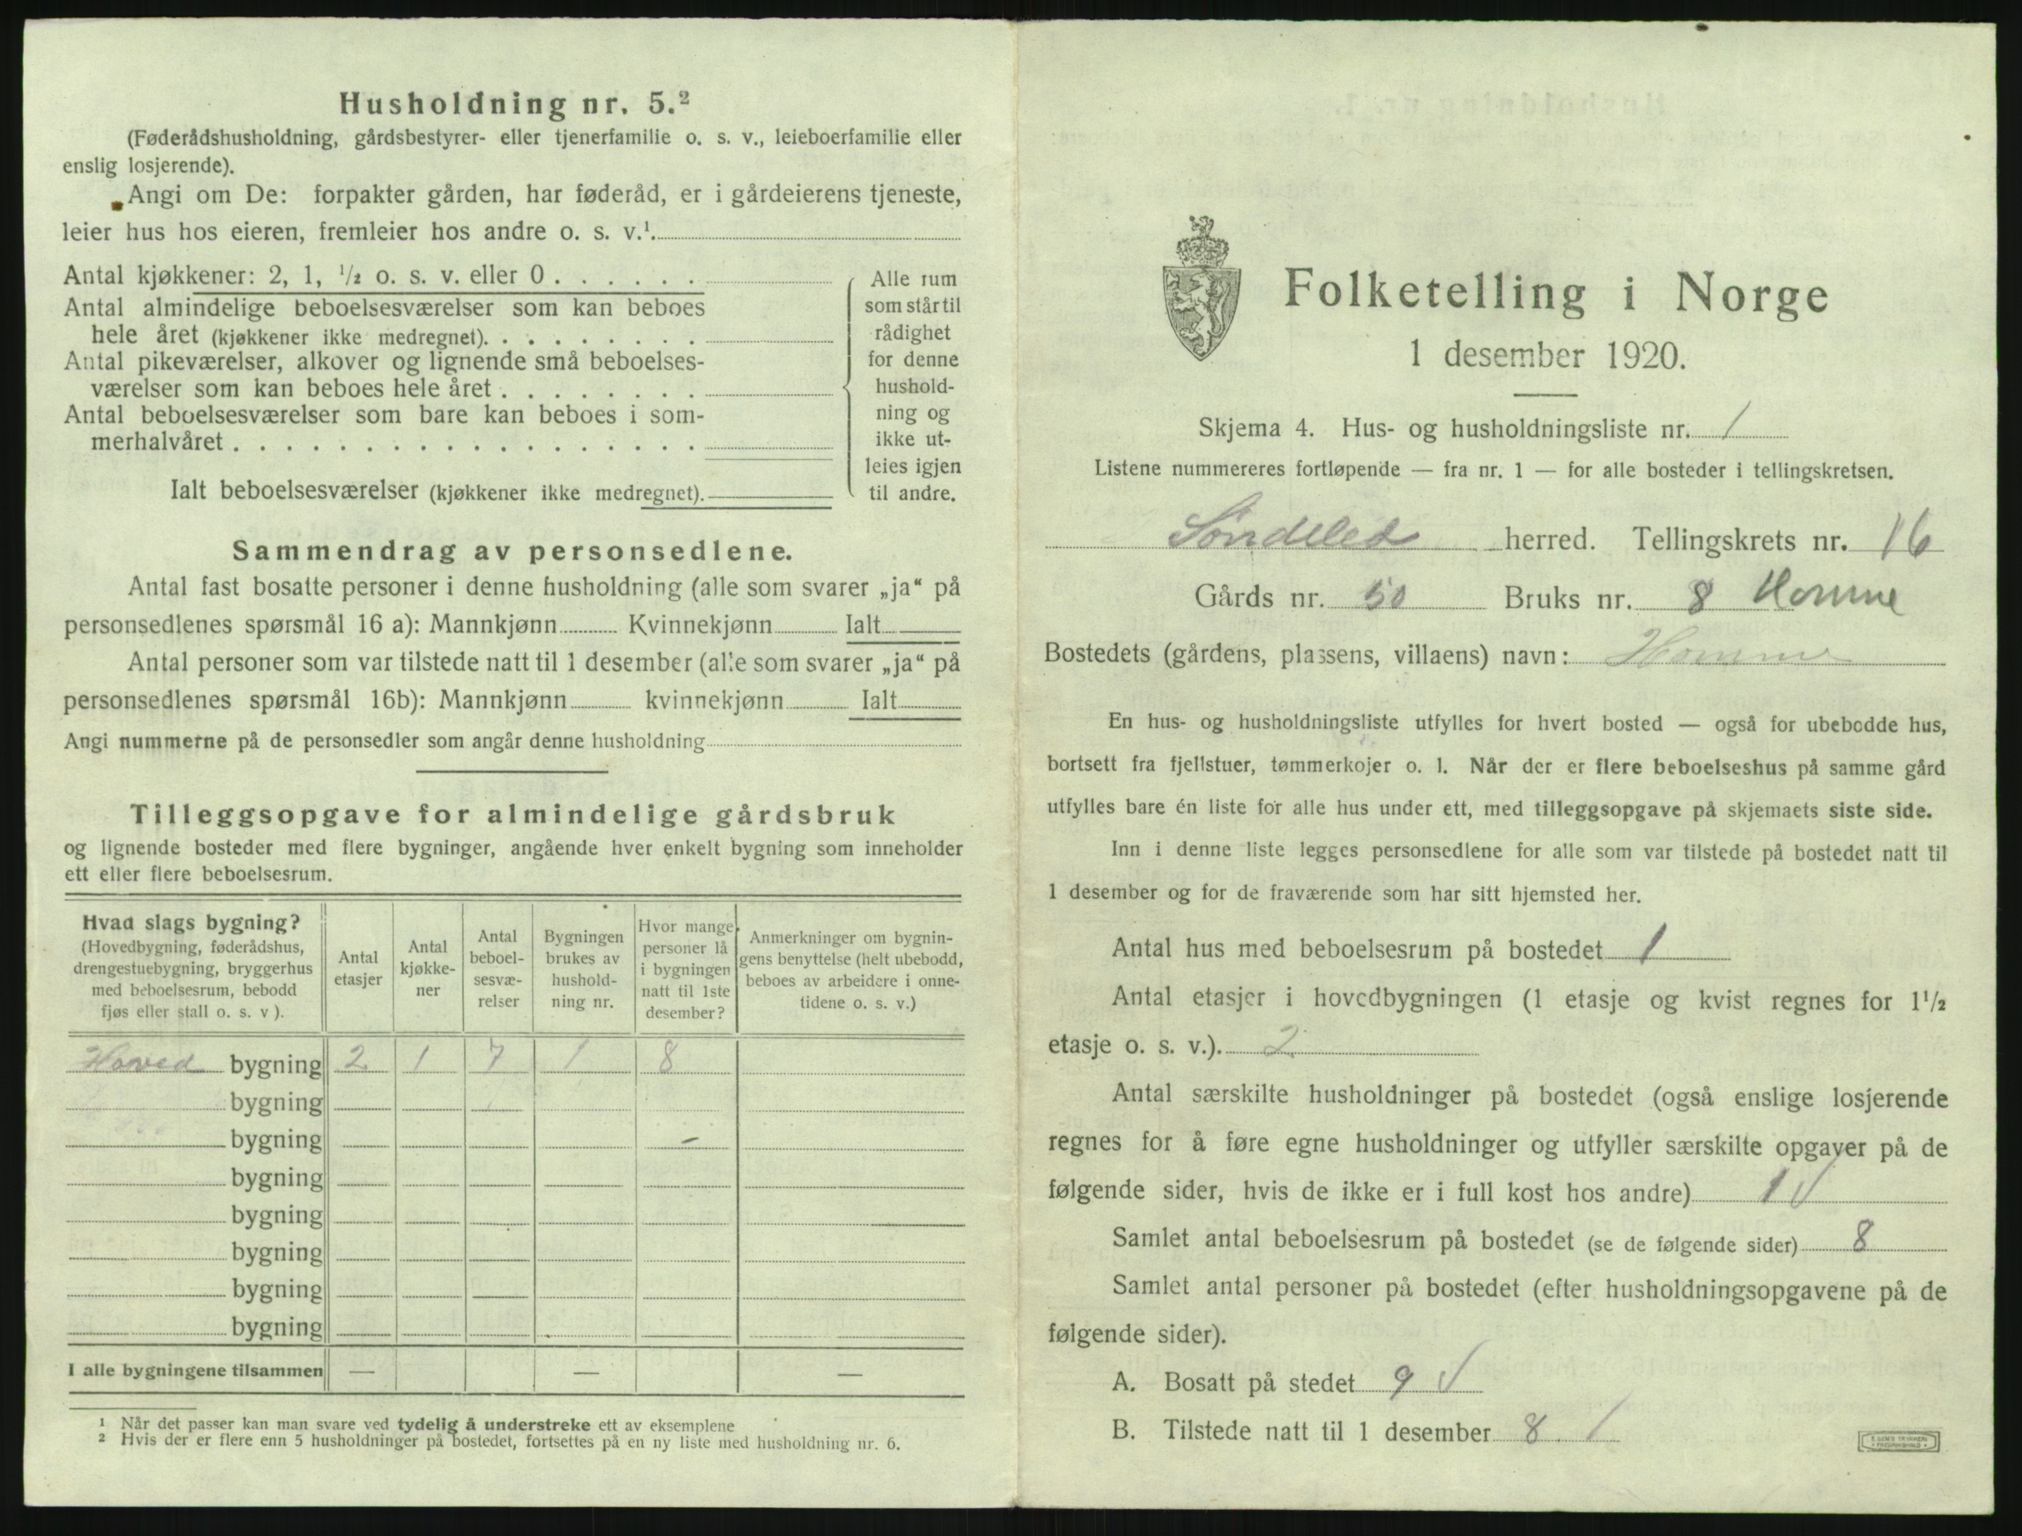 Husholdning nr. 5.²
(Føderådshusholdning, gårdsbestyrer- eller tjenerfamilie o. s. v., leieboerfamilie eller
enslig losjerende).
Angi om De: forpakter gården, har føderåd, er i gårdeierens tjeneste,
leier hus hos eieren, fremleier hos andre o. s. v.¹.
Antal kjøkkener: 2, 1, ½ o. s. v. eller 0 . . . . . .
Antal almindelige beboelsesværelser som kan beboes
hele året (kjøkkener ikke medregnet). . . . . . . . .
Antal pikeværelser, alkover og lignende små beboelses-
værelser som kan beboes hele året . . . . . . . .
Antal beboelsesværelser som bare kan beboes i som-
merhalvåret . . . . . . . . . . . . . . . . . .
Ialt beboelsesværelser (kjøkkener ikke medregnet).
Alle rum
som står til
rådighet
for denne
hushold-
ning og
ikke ut-
leies igjen
til andre.
Sammendrag av personsedlene.
Antal fast bosatte personer i denne husholdning (alle som svarer „ja“ på
personsedlenes spørsmål 16 a): Mannkjønn Kvinnekjønn Ialt
Antal personer som var tilstede natt til 1 desember (alle som svarer „ja“ på
personsedlenes spørsmål 16b): Mannkjønn kvinnekjønn Ialt
Angi nummerne på de personsedler som angår denne husholdning
Tilleggsopgave for almindelige gårdsbruk
og lignende bosteder med flere bygninger, angående hver enkelt bygning som inneholder
ett eller flere beboelsesrum.
Hvad slags bygning?
(Hovedbygning, føderådshus,
drengestuebygning, bryggerhus
med beboelsesrum, bebodd
fjøs eller stall o. s. v ).
Antal
etasjer
Antal
kjøkke-
ner
Antal
beboel-
sesvæ-
relser
Bygningen
brukes av
hushold-
ning nr.
Hvor mange
personer lå
i bygningen
natt til 1ste
desember?
Anmerkninger om bygnin-
gens benyttelse (helt ubebodd,
beboes av arbeidere i onne-
tidene o. s. v.)
Hoved bygning 2 1 7 1 8
bygning
bygning –
bygning
bygning
bygning
bygning
bygning
I alle bygningene tilsammen — — —
¹ Når det passer kan man svare ved tydelig å understreke ett av eksemplene
² Hvis der er flere enn 5 husholdninger på bostedet, fortsettes på en ny liste med husholdning nr. 6.
Folketelling i Norge
1 desember 1920.
Skjema 4. Hus- og husholdningsliste nr. 1
Listene nummereres fortløpende — fra nr. 1 — for alle bosteder i tellingskretsen.
Søndeled herred. Tellingskrets nr. 16
Gårds nr. 50 Bruks nr. 8 Homme
Bostedets (gårdens, plassens, villaens) navn: Homme
En hus- og husholdningsliste utfylles for hvert bosted — også for ubebodde hus,
bortsett fra fjellstuer, tømmerkojer o. l. Når der er flere beboelseshus på samme gård
utfylles bare én liste for alle hus under ett, med tilleggsopgave på skjemaets siste side.
Inn i denne liste legges personsedlene for alle som var tilstede på bostedet natt til
1 desember og for de fraværende som har sitt hjemsted her.
Antal hus med beboelsesrum på bostedet 1
Antal etasjer i hovedbygningen (1 etasje og kvist regnes for 1½
etasje o. s. v.). 2
Antal særskilte husholdninger på bostedet (også enslige losjerende
regnes for å føre egne husholdninger og utfyller særskilte opgaver på de
følgende sider, hvis de ikke er i full kost hos andre) 1 √
Samlet antal beboelsesrum på bostedet (se de følgende sider) 8
Samlet antal personer på bostedet (efter husholdningsopgavene på de
følgende sider).
A. Bosatt på stedet 9 √
B. Tilstede natt til 1 desember 8 /